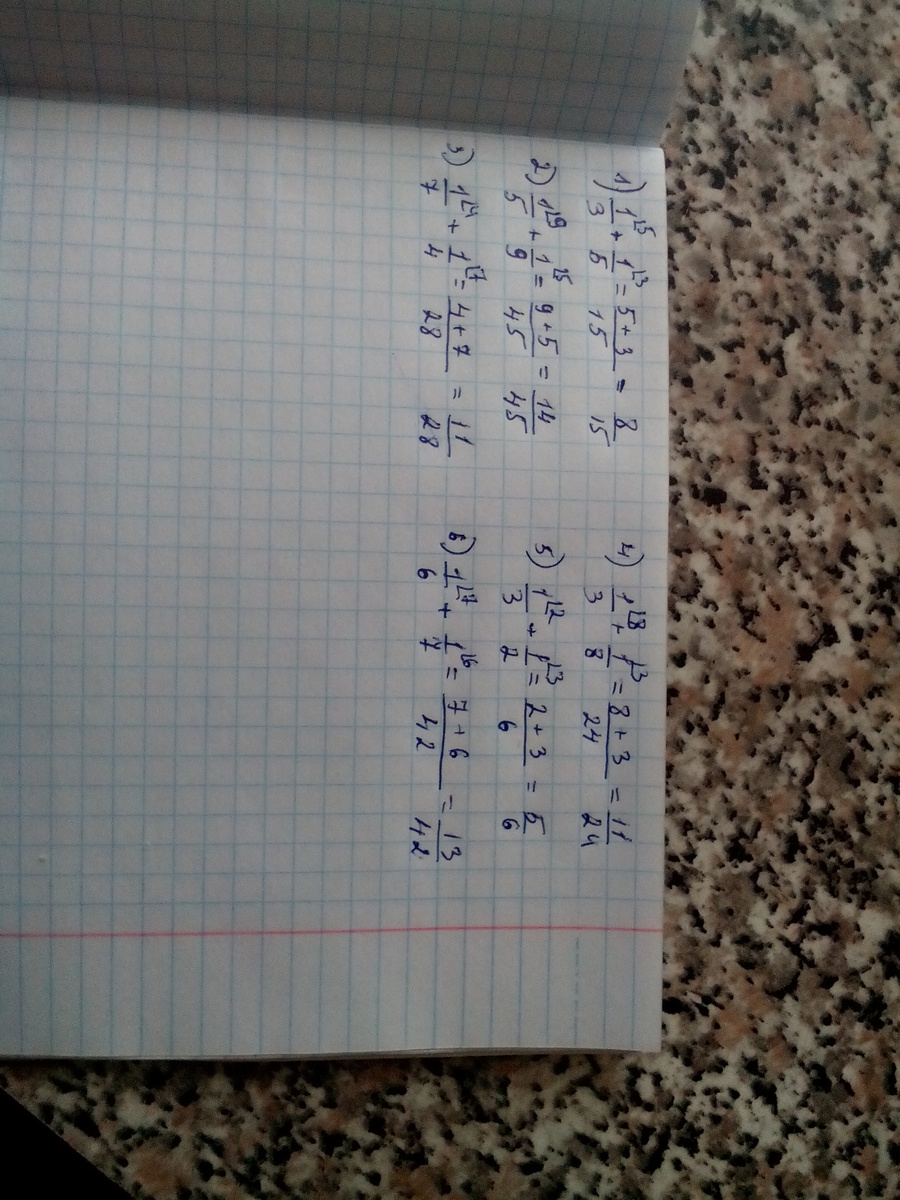 1) 1/3 ⌊5 + 1/5 ⌊3 = (5+3)/15 = 8/15
2) 1/5 ⌊9 + 1/9 ⌊5 = (9+5)/45 = 14/45
3) 1/7 ⌊4 + 1/4 ⌊7 = (4+7)/28 = 11/28
4) 1/3 ⌊8 + 1/8 ⌊3 = (8+3)/24 = 11/24
5) 1/3 ⌊2 + 1/2 ⌊3 = (2+3)/6 = 5/6
6) 1/6 ⌊7 + 1/7 ⌊6 = (7+6)/42 = 13/42